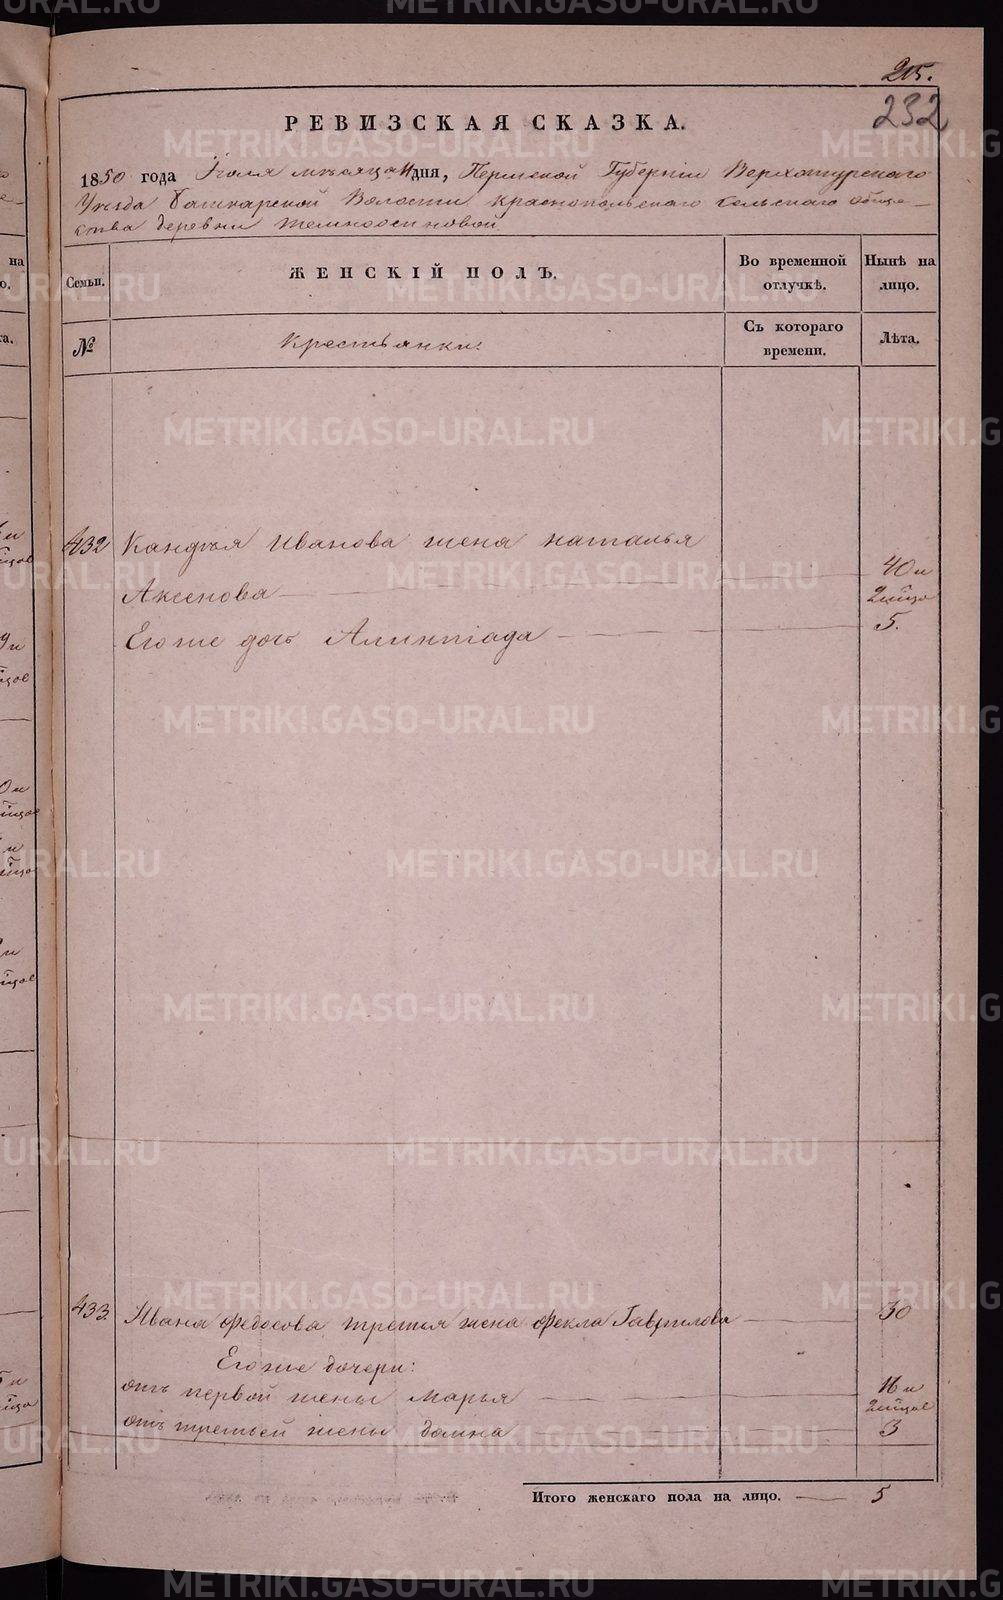 215.
232
РЕВИЗСКАЯ СКАЗКА.
1850 года Іюля мѣсяца дня, Пермской Губерніи Верхотурскаго
Уѣзда Башкарской Волости Краснопольскаго сельскаго обще-
ства деревни Темноосиновой.
Семьи.
ЖЕНСКІЙ ПОЛЪ.
Во временной отлучкѣ.
Нынѣ на лицо.
№
Крестьянки:
Съ котораго времени.
Лѣта.
432 Кандѣя Иванова жена Наталья
Аксенова 40 и
Его же дочь Алимпіада 5.
433. Ивана Федосова третья жена Фекла Гаврилова 30
Его же дочери:
отъ первой жены Марья 16 и
отъ третьей жены Домна 3
Итого женскаго пола на лицо. 5
METRIKI.GASO-URAL.RU